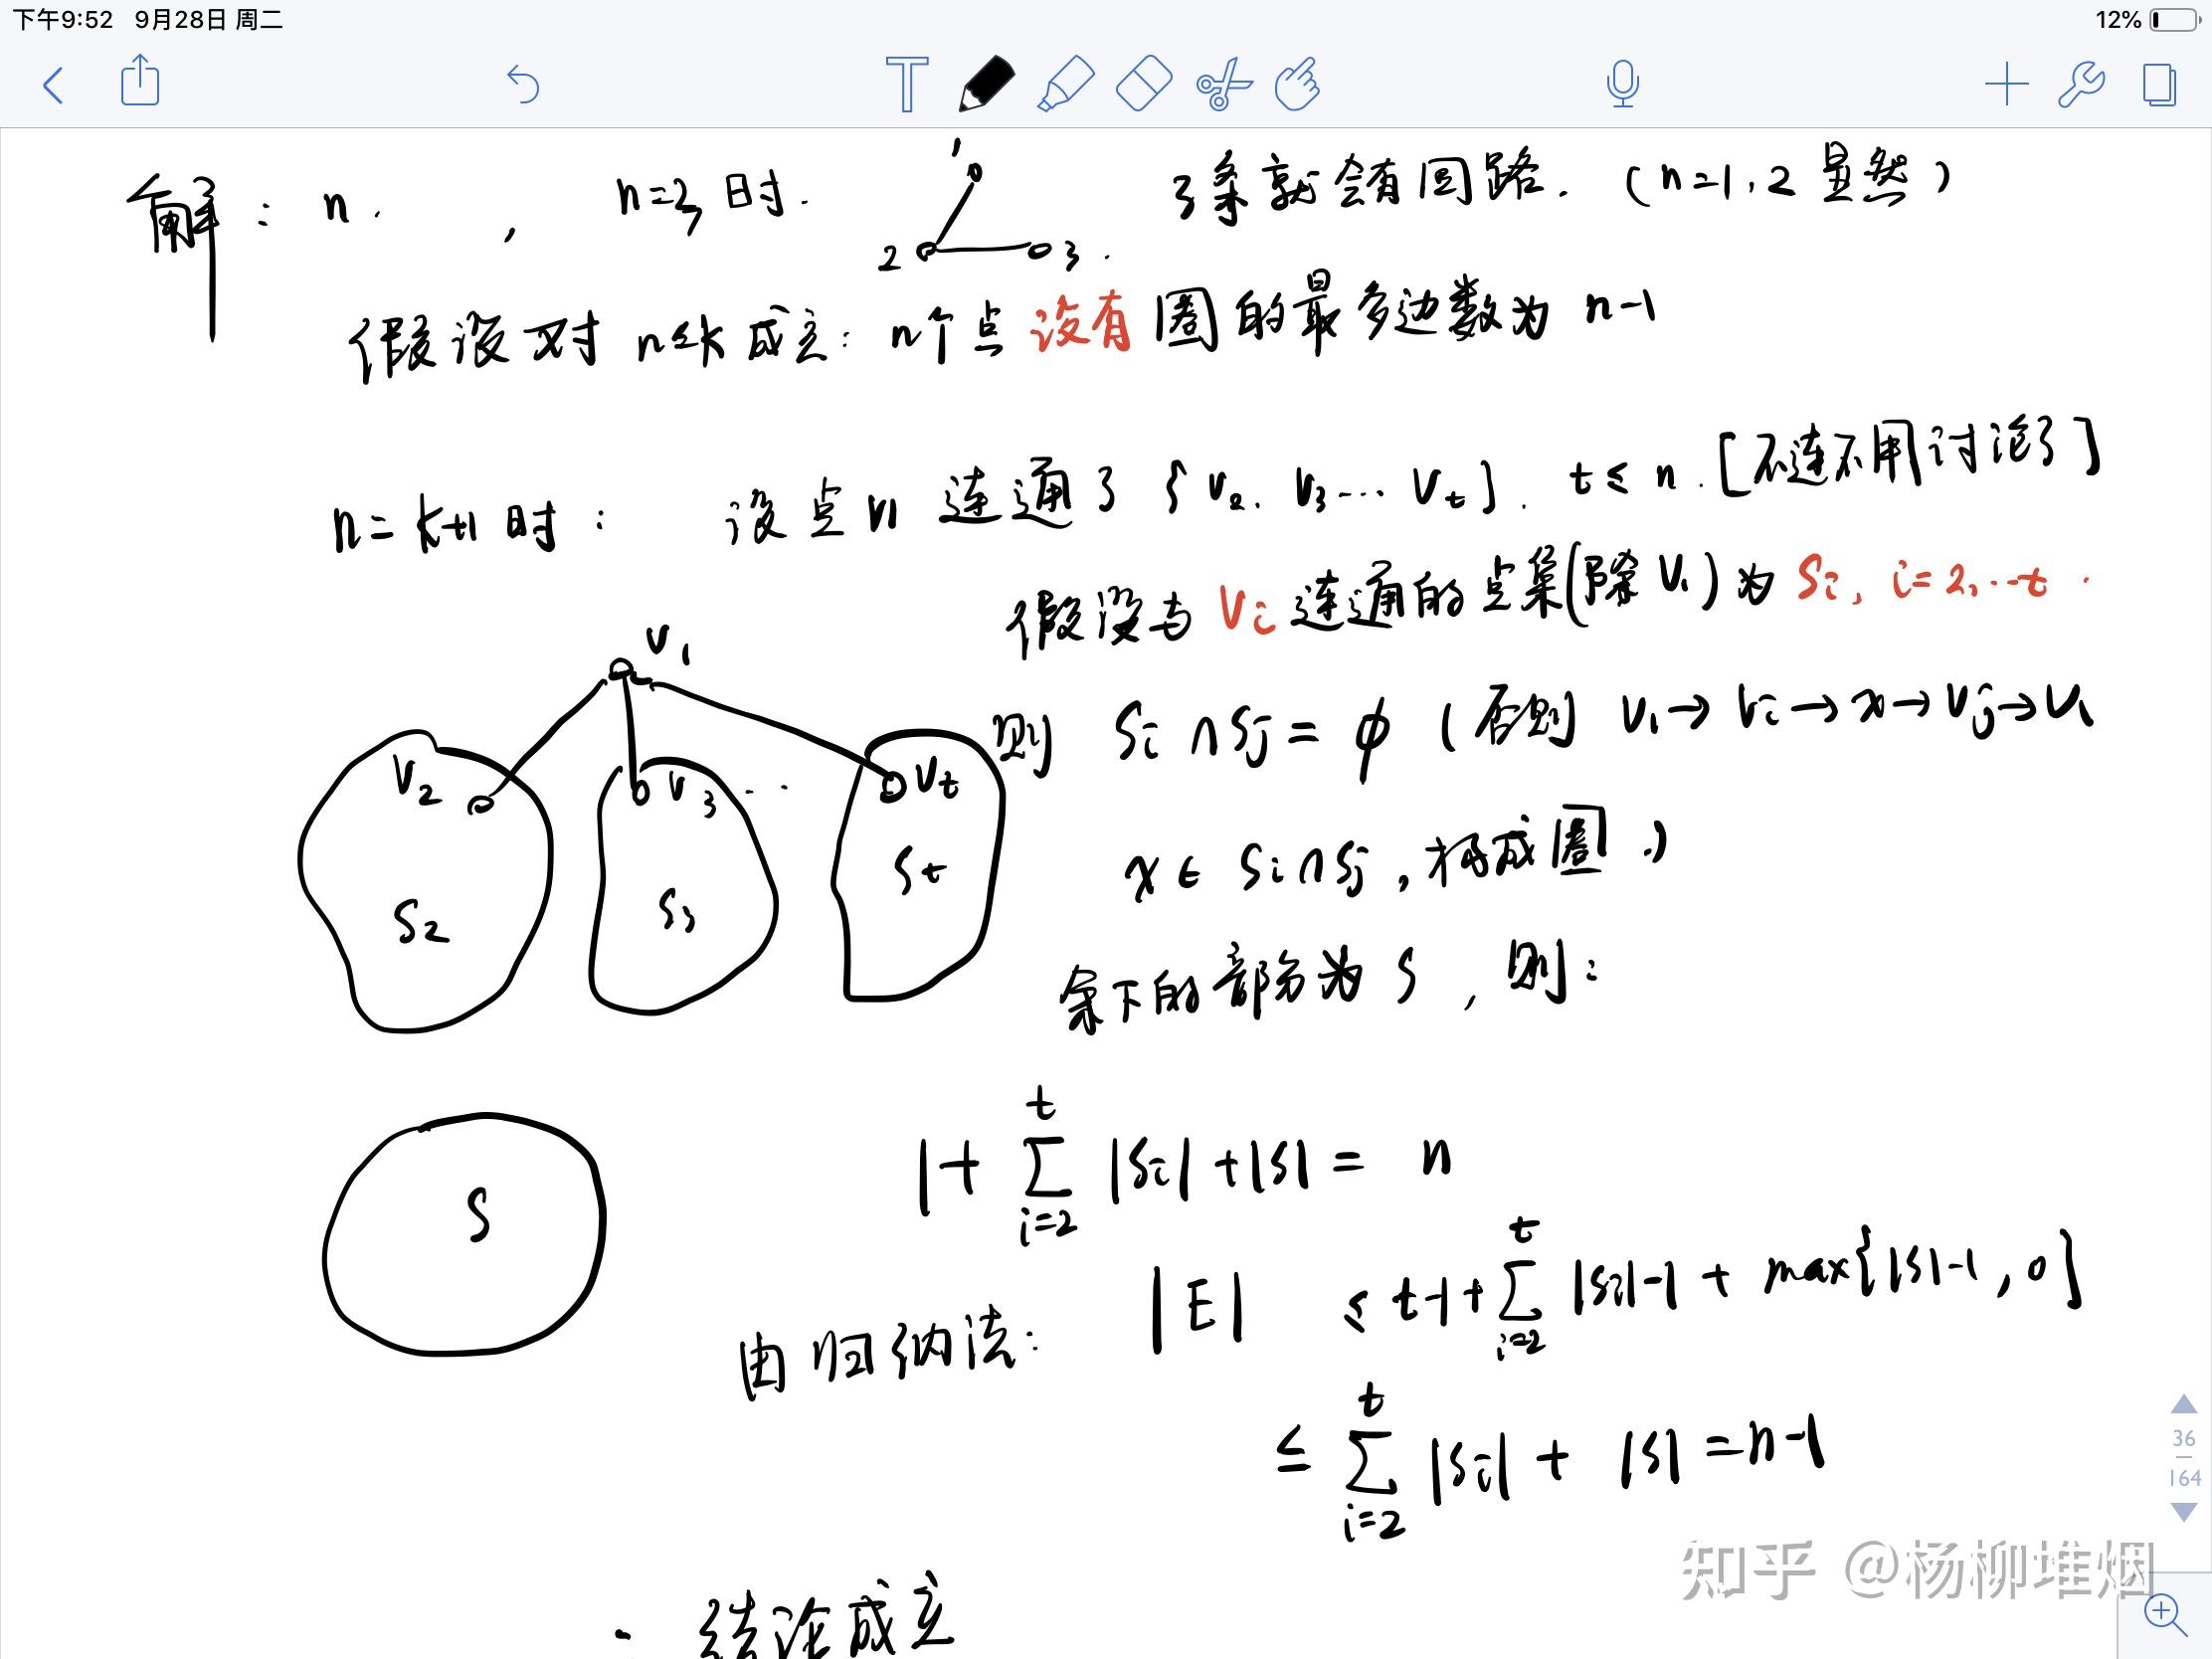 下午9:52 9月28日 周二
12%
解: n. , n=3时. 3条就会有回路. (n=1,2 显然)
1
2 3
假设对 n≤k 成立: n个点没有圈的最多边数为 n-1
n=k+1时: 设点v1 连通了{v2, v3... vt}, t≤n. [不连不用讨论了]
假设与Vi连通的点集(除V1)为Si, i=2,...t.
则 Si∩Sj=φ (否则 V1→Vi→x→Vj→V1
x∈Si∩Sj, 构成圈.)
余下的部分为S, 则:
V1
V2 V3 ... Vt
S2 S3 St
S
1+∑_{i=2}^{t}|Si|+|S|= n
由归纳法: |E| ≤ t-1+∑_{i=2}^{t}|Si|-1+max{|S|-1,0}
≤ ∑_{i=2}^{t}|Si|+|S|=n-1
结论成立
36
164
知乎 @杨柳堆烟